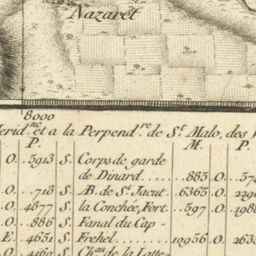 Nazaret
8000
erid.ne et a la Perpend.re de S.t Malo, des
P. M. P.
O. 5913 S. Corps de garde
de Dinard....... 883 O.
O. 713 S. AB. de S.t Jacut. 6363 O.
O. 4877 S. la Conchée, Fort. 597 O.
O. 886 S. Fanal du Cap
E. 4631 S. Frehel........ 10956 O.
de la Latte